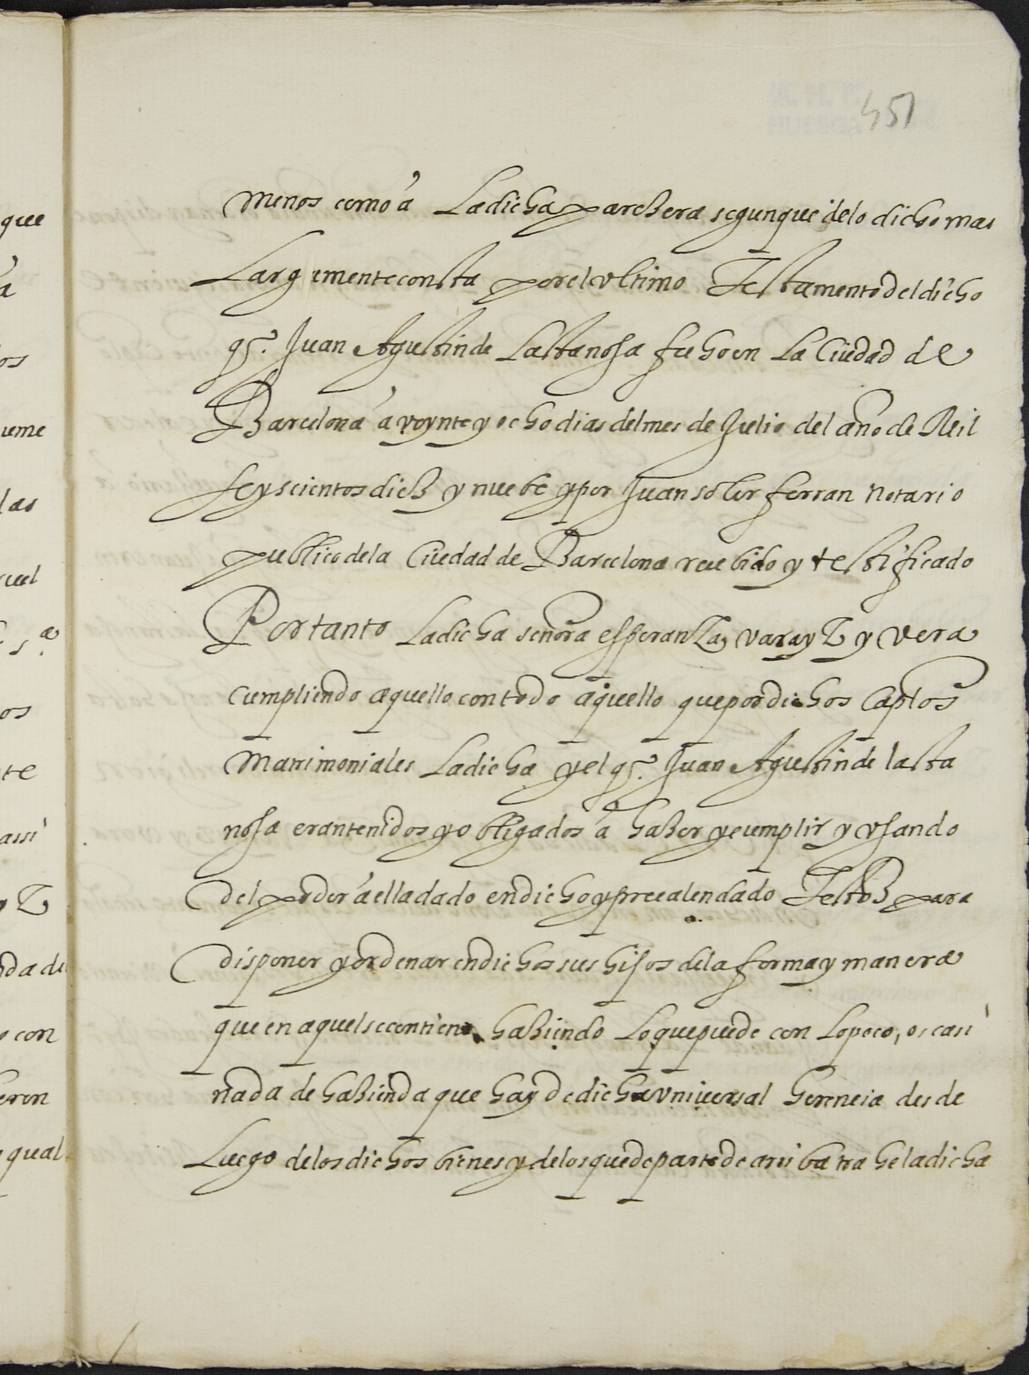 451
menos como á La dicha parezera segun que de lo dicho mas
Largamente consta por el vltimo Testamento del dicho
qº. Juan Agustin de Lastanosa fecho en La Ciudad de
Barcelona á veynte y ocho dias del mes de Julio del año de Mil
seyscientos diez y nuebe y por Juan soler ferran Notario
publico de la Ciudad de Barcelona recebido y testificado
Por tanto La dicha señora esperanza, varayz y vera
cumpliendo aquello con todo aquello que por dichos Caplos
Matrimoniales La dicha y el qº. Juan Agustin de lasta
nosa eran tenidos y obligados á hazer y cumplir y vsando
del poder á ella dado en dicho y precalendado Testo para
disponer y ordenar en dichos sus hijos de la forma y manera
que en aquel se contiene haziendo Lo que puede con Lo poco, o casi
nada de hazienda que hay de dicha vniuersal herencia desde
Luego de los dichos bienes y de los que de parte de arriba trahe la dicha
que
á
os
ueme
las
os
te
assi
y Z
nda de
o con
qual